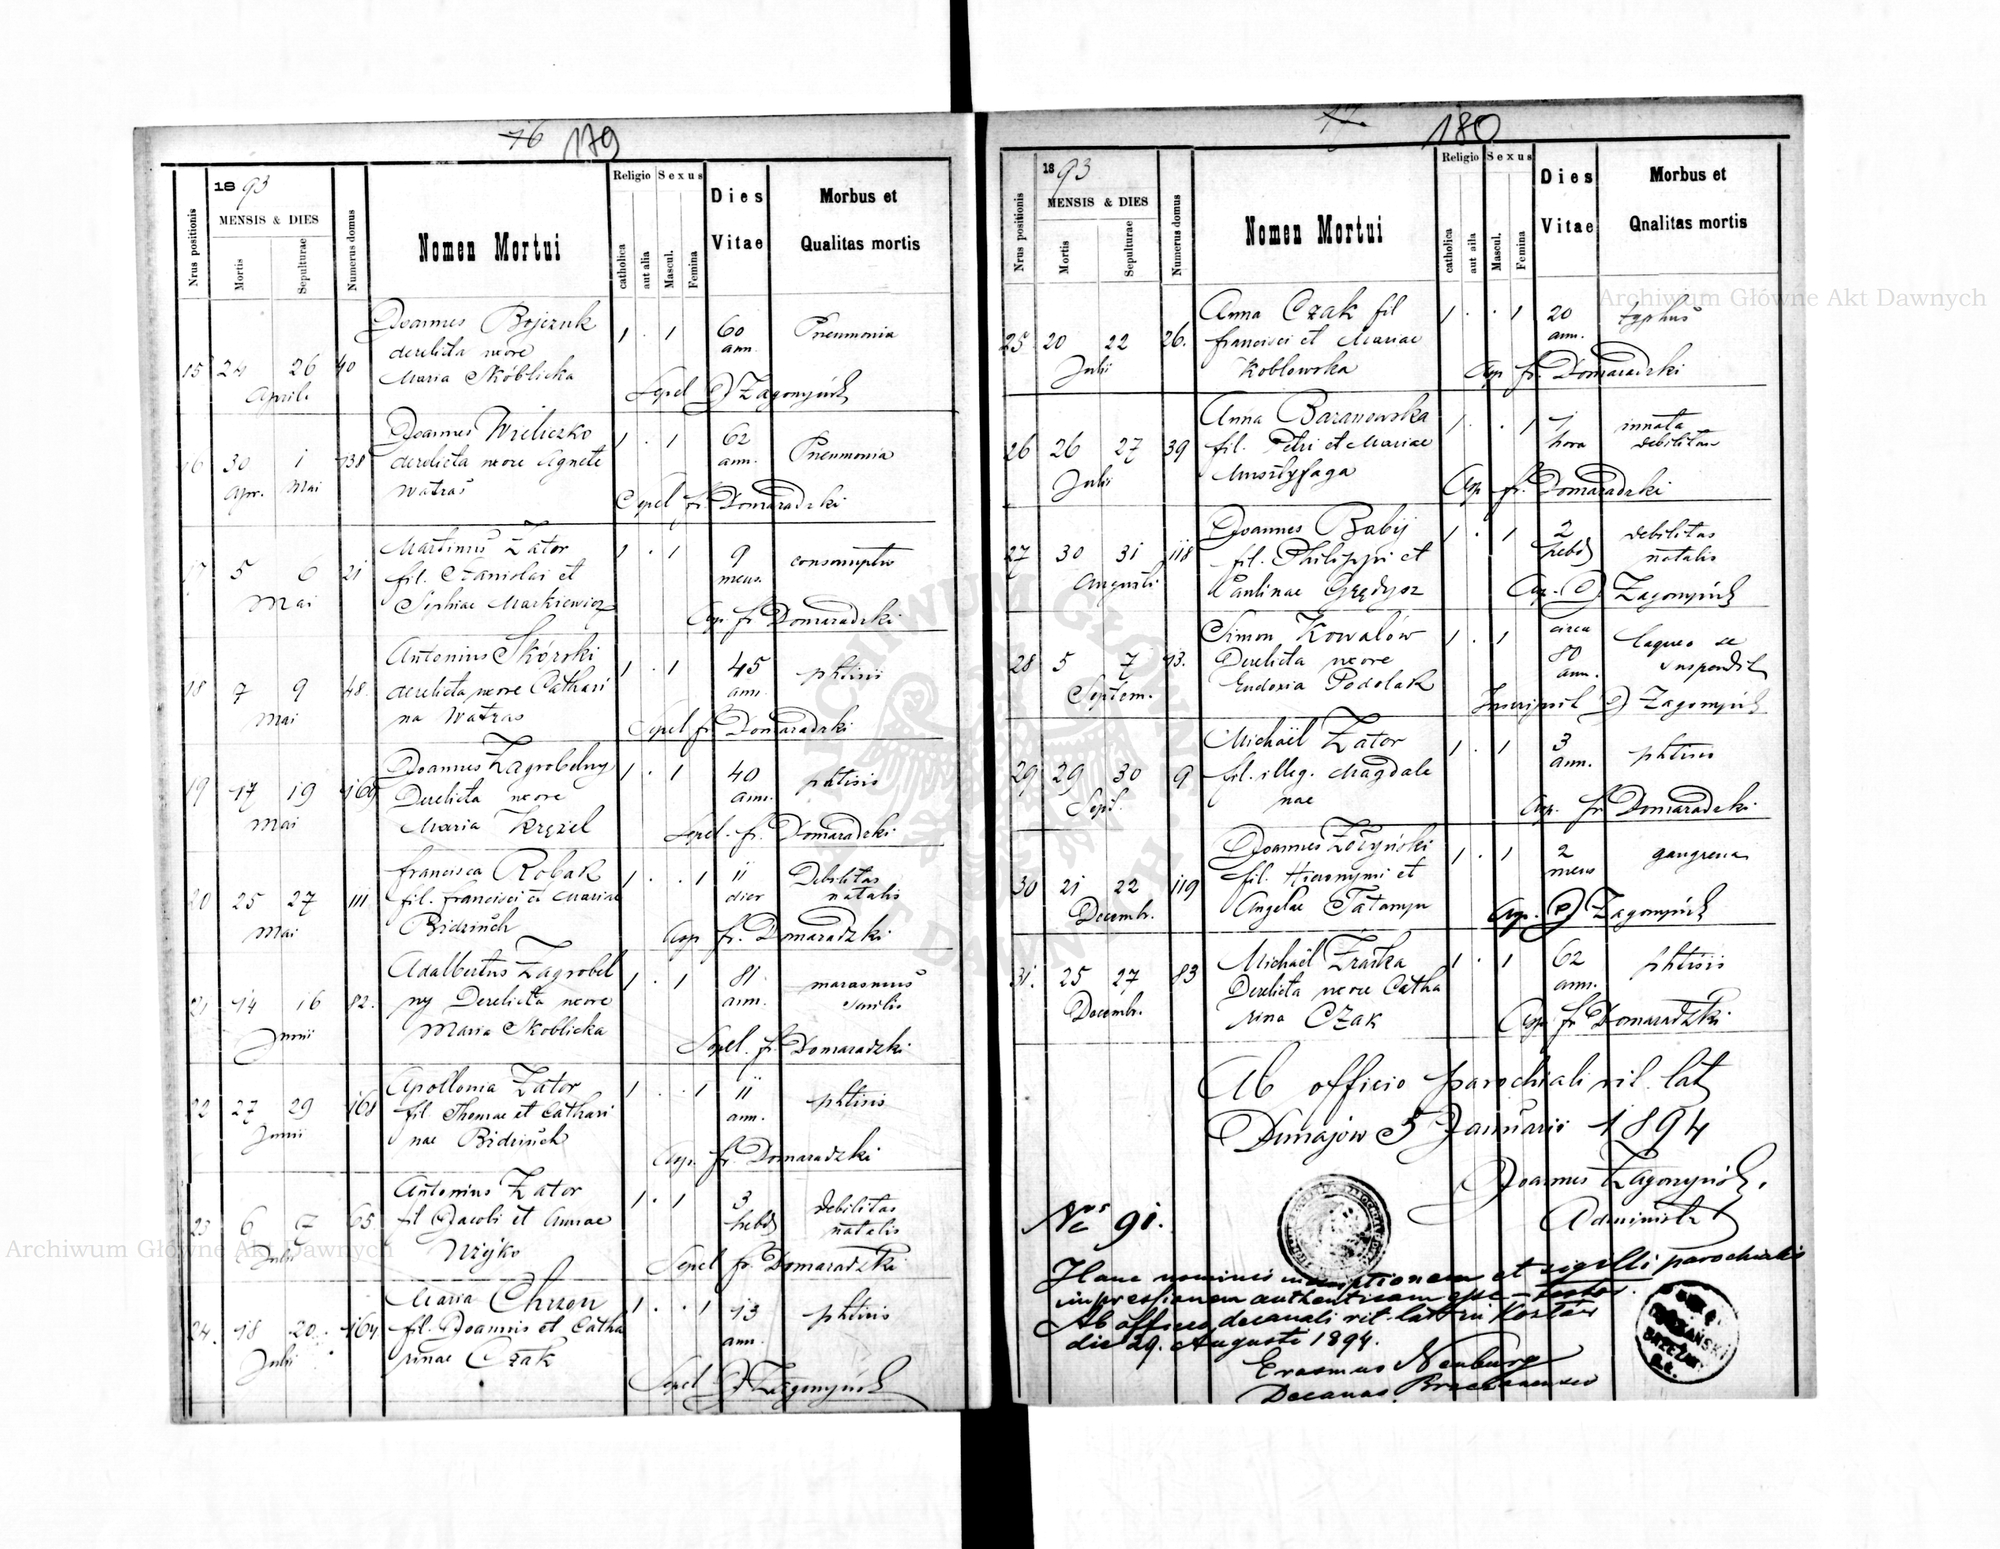 76 179
1893
MENSIS & DIES
Nrus positionis
Mortis
Sepulturae
Numerus domus
Nomen Mortui
Religio
Sexus
catholica
aut alia
Mascul.
Femina
Dies
Vitae
Morbus et
Qualitas mortis
Joannes Bojczuk
derelicta uxore
Maria Skoblicka
15 24 26 40 1 . 1 60 Pneumonia
Aprili ann.
Sepel Zagonyński
Joannes Wieliczko
derelicta uxore Agnete
Watras
16 30 1 138 1 . 1 62 Pneumonia
Apr. Mai ann.
Sepel fr. Domaradzki
Martinus Zator
fil. Stanislai et
Sophiae Markiewicz
17 5 6 21 1 . 1 9
Mai mens.
Cap. fr Domaradzki
Antonius Skórski
derelicta uxore Cathari
na Watras
18 7 9 48. 1 . 1 45 phtisis
Mai ann.
Sepel fr Domaradzki
Joannes Zagrobelny
Derelicta uxore
Maria Krężel
19 17 19 169 1 . 1 40 phtisis
Mai ann.
Sepel. fr. Domaradzki
Francisca Robak
fil. Francisci et Mariae
20 25 27 111 1 . . 1 11 Debilitas
natalis
Mai dier
Cap fr. Domaradzki
Adalbertus Zagrobel
ny Derelicta uxore
Maria Skoblicka
21 14 16 82. 1 . 1 81 marasmus
senilis
Junii ann.
Sepel. fr. Domaradzki
Apollonia Zator
fil Thomae et Cathari
nae
22 27 29 168 1 . . 1 11 phtisis
Junii ann.
Cap. fr. Domaradzki
Antonius Zator
fil Jacobi et Annae
Wijko
23 6 7 65. 1 . 1 3 debilitas
natalis
Julii hebd
Sepel fr. Domaradzki
Maria Chuson
fil. Joannis et Catha
rinae Czak
24. 18 20. 164 1 . . 1 13 phtisis
Julii ann.
Sepel Zagonyński
180
1893
MENSIS & DIES
Nrus positionis
Mortis
Sepulturae
Numerus domus
Nomen Mortui
Religio
Sexus
catholica
aut aila
Mascul.
Femina
Dies
Vitae
Morbus et
Qnalitas mortis
Anna Czak fil
Francisci et Mariae
Koblowska
25 20 22 26. 1 . . 1 20 typhus
Julii ann.
Cap fr. Domaradzki
Anna Baranowska
fil. Petri et Mariae
26 26 27 39 1 . . 1 1 innata
hora debilitas
Julii
Cap fr. Domaradzki
Joannes Babij
fil. Philippi et
Paulinae Grędysz
27 30 31 118 1 . 1 2 debilitas
hebd natalis
Augusti
Cap. Zagonyński
Simon Kowalów
Derelicta uxore
Eudoxia Podolak
28 5 7 13. 1 . 1 circa
80
ann.
laqueo se
suspendit
Septem.
Inscripsit Zagonyński
Michaël Zator
fil. illeg. Magdale
nae
29 29 30 9 1 . 1 3 phtisis
Sept. ann.
Cap. fr Domaradzki
Joannes Łożyński
fil. Hieronymi et
Angelae
30 21 22 119 1 . 1 2 gangrena
Decembr. mens
Cap. Zagonyński
Michaël Zraska
Derelicta uxore Catha
rina Czak
31. 25 27 83 1 . 1 62 phtisis
Decembr. ann.
Cap fr Domaradzki
Ab officio parochiali rit. lat
Dunajow 5 Januarii 1894
Joannes Zagonyński
Administr
Nrs 91.
Hanc nominis inscriptionem et sigilli parochialis
impressionem authenticam esse testor.
Ab officio decanali rit. lat. in
die 29. Augusti 1894.
Erasmus Neuburg
Decanus Brzezanensis
Archiwum Główne Akt Dawnych
Archiwum Główne Akt Dawnych
ARCHIWUM GŁÓWNE AKT DAWNYCH